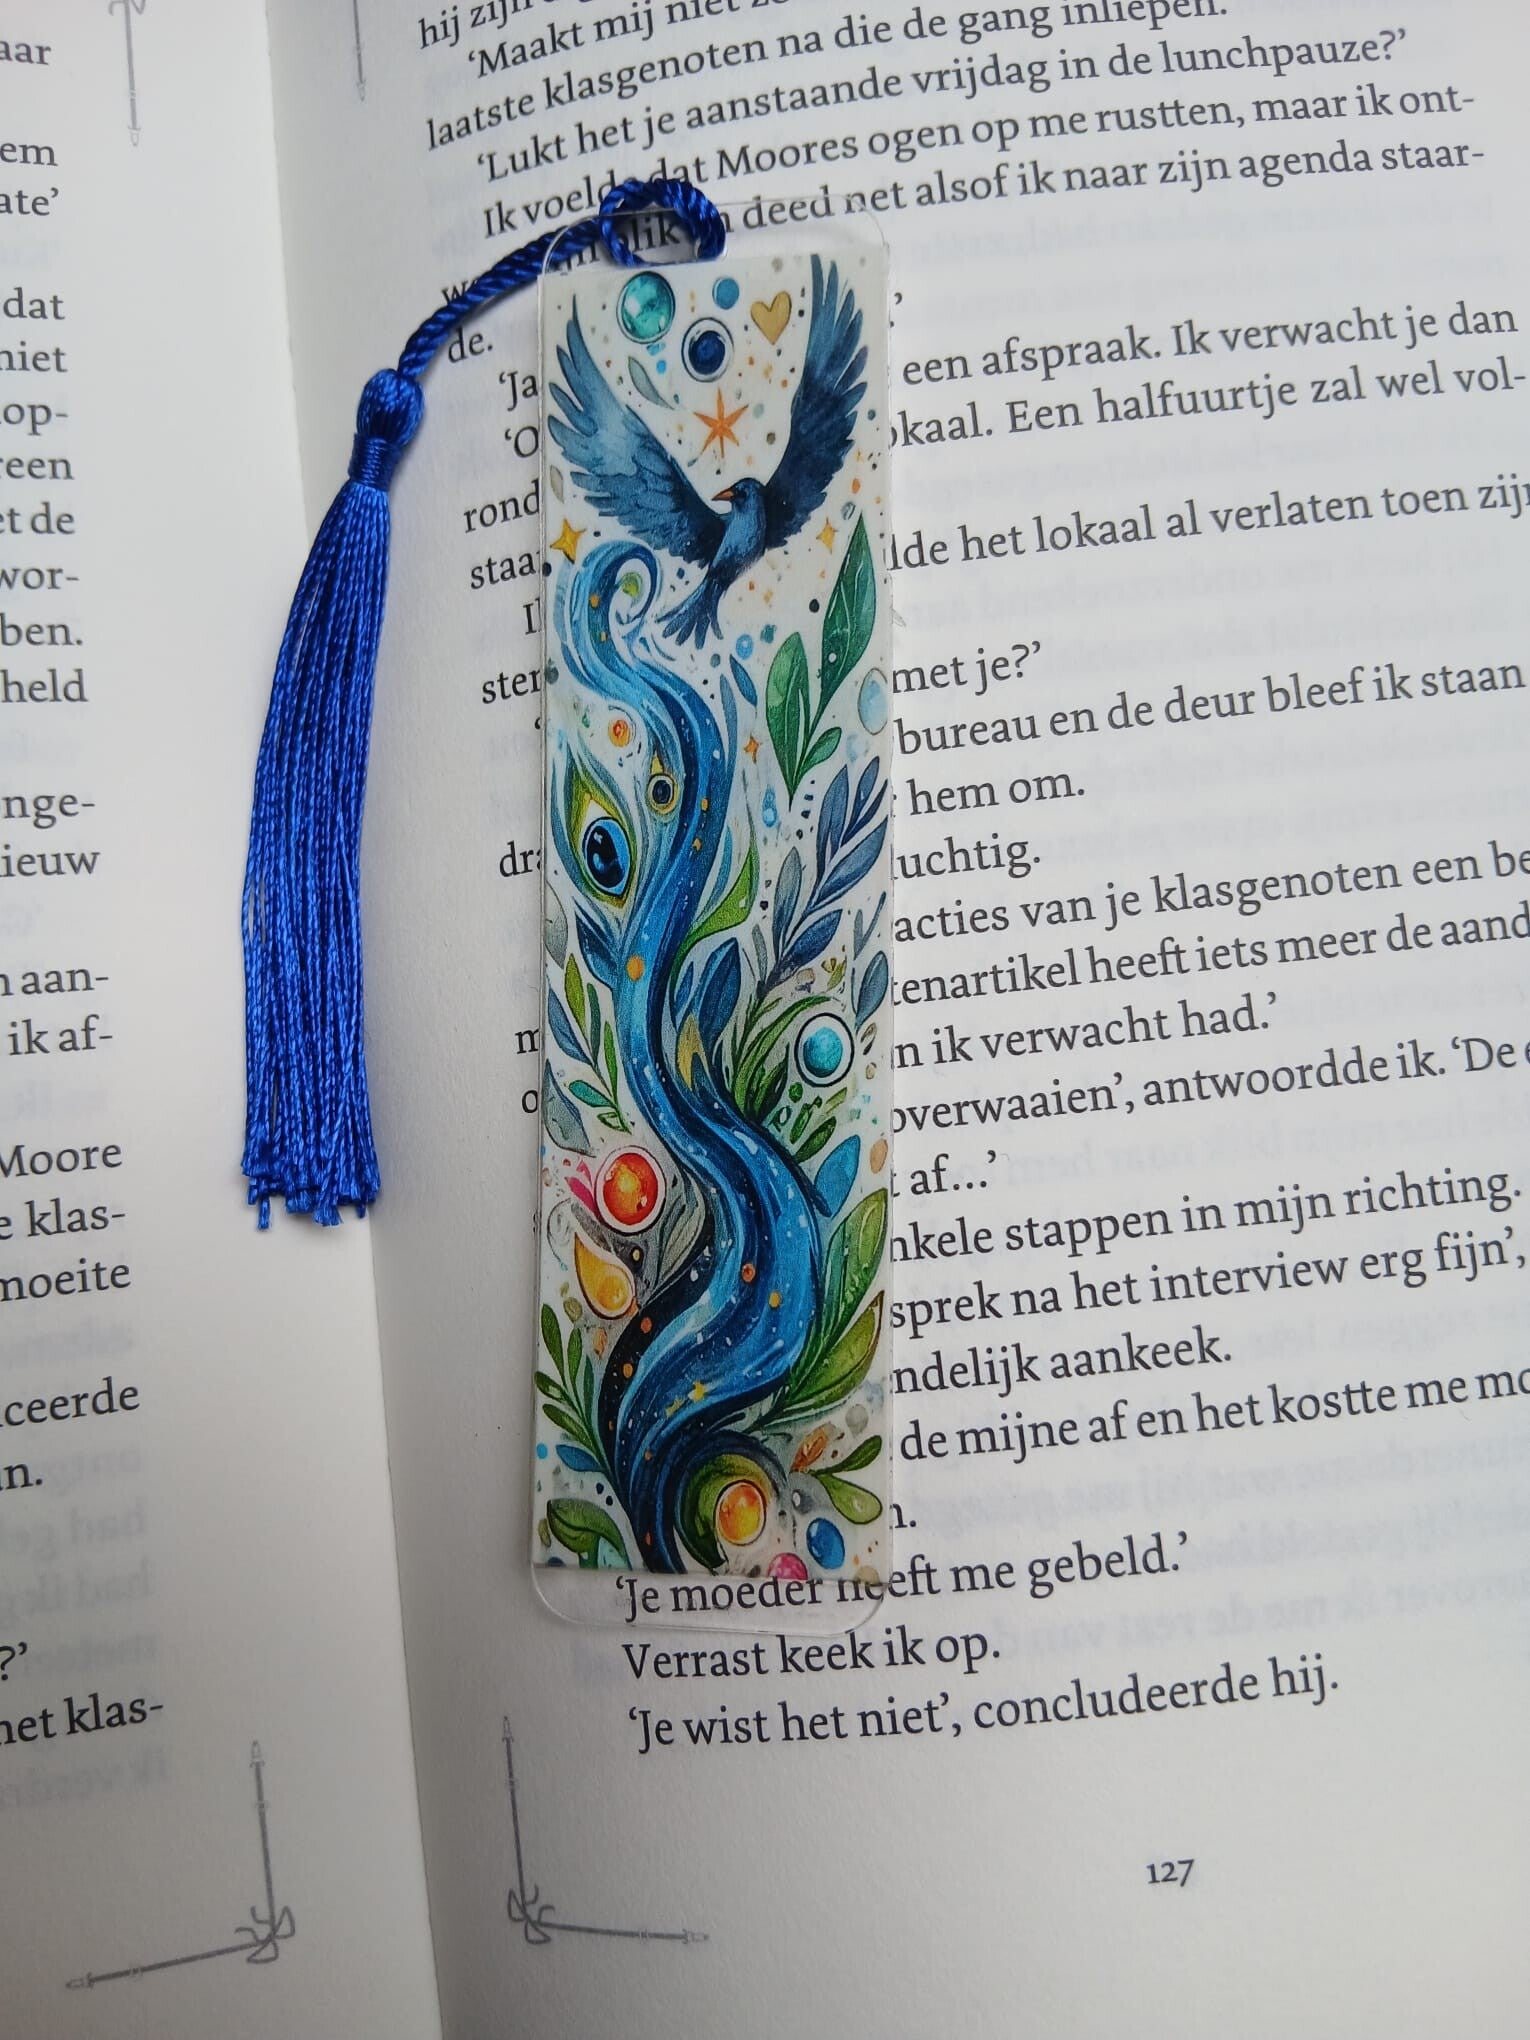 aar
em
ate’
dat
niet
op-
reen
et de
wor-
ben.
held
nge-
ieuw
n aan-
ik af-
Moore
e klas-
moeite
ceerde
n.
?’
het klas-
hij zijn
‘Maakt mij niet
laatste klasgenoten na die de gang inliepen.
‘Lukt het je aanstaande vrijdag in de lunchpauze?’
Ik voelde dat Moores ogen op me rustten, maar ik ont-
blik en deed net alsof ik naar zijn agenda staar-
de.
‘Ja
een afspraak. Ik verwacht je dan
‘O
okaal. Een halfuurtje zal wel vol-
rond
staa
lde het lokaal al verlaten toen zijn
I
ster
met je?’
bureau en de deur bleef ik staan
hem om.
dra
luchtig.
acties van je klasgenoten een be
tenartikel heeft iets meer de aand
m
n ik verwacht had.’
o
overwaaien’, antwoordde ik. ‘De e
af...’
nkele stappen in mijn richting.
sprek na het interview erg fijn’,
ndelijk aankeek.
de mijne af en het kostte me mo
n.
‘Je moeder heeft me gebeld.’
Verrast keek ik op.
‘Je wist het niet’, concludeerde hij.
127